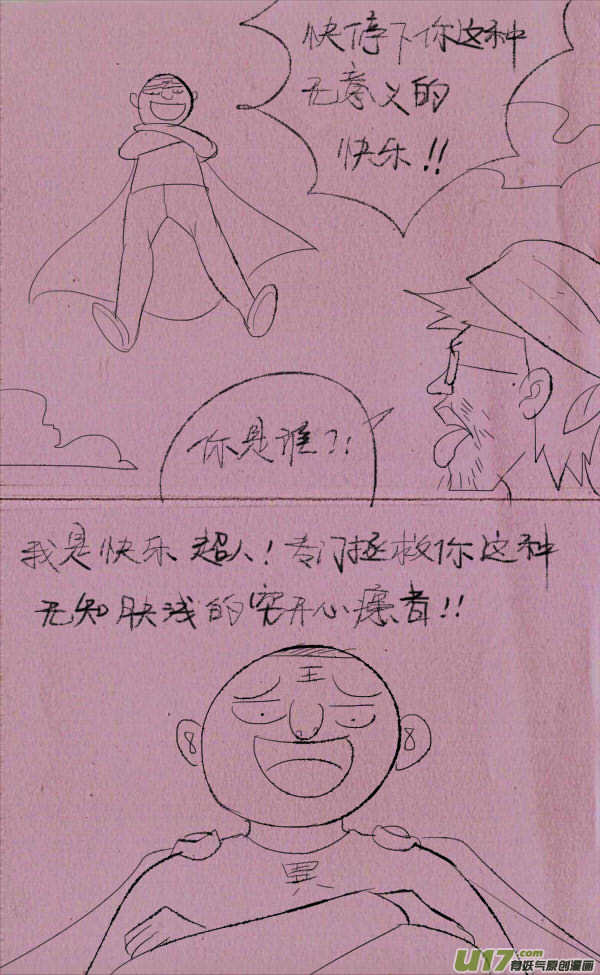 快停下你这种
无意义的
快乐!!
你是谁?!
我是快乐超人!专门拯救你这种
无知肤浅的穷开心患者!!
王
異
U17.com
有妖气原创漫画